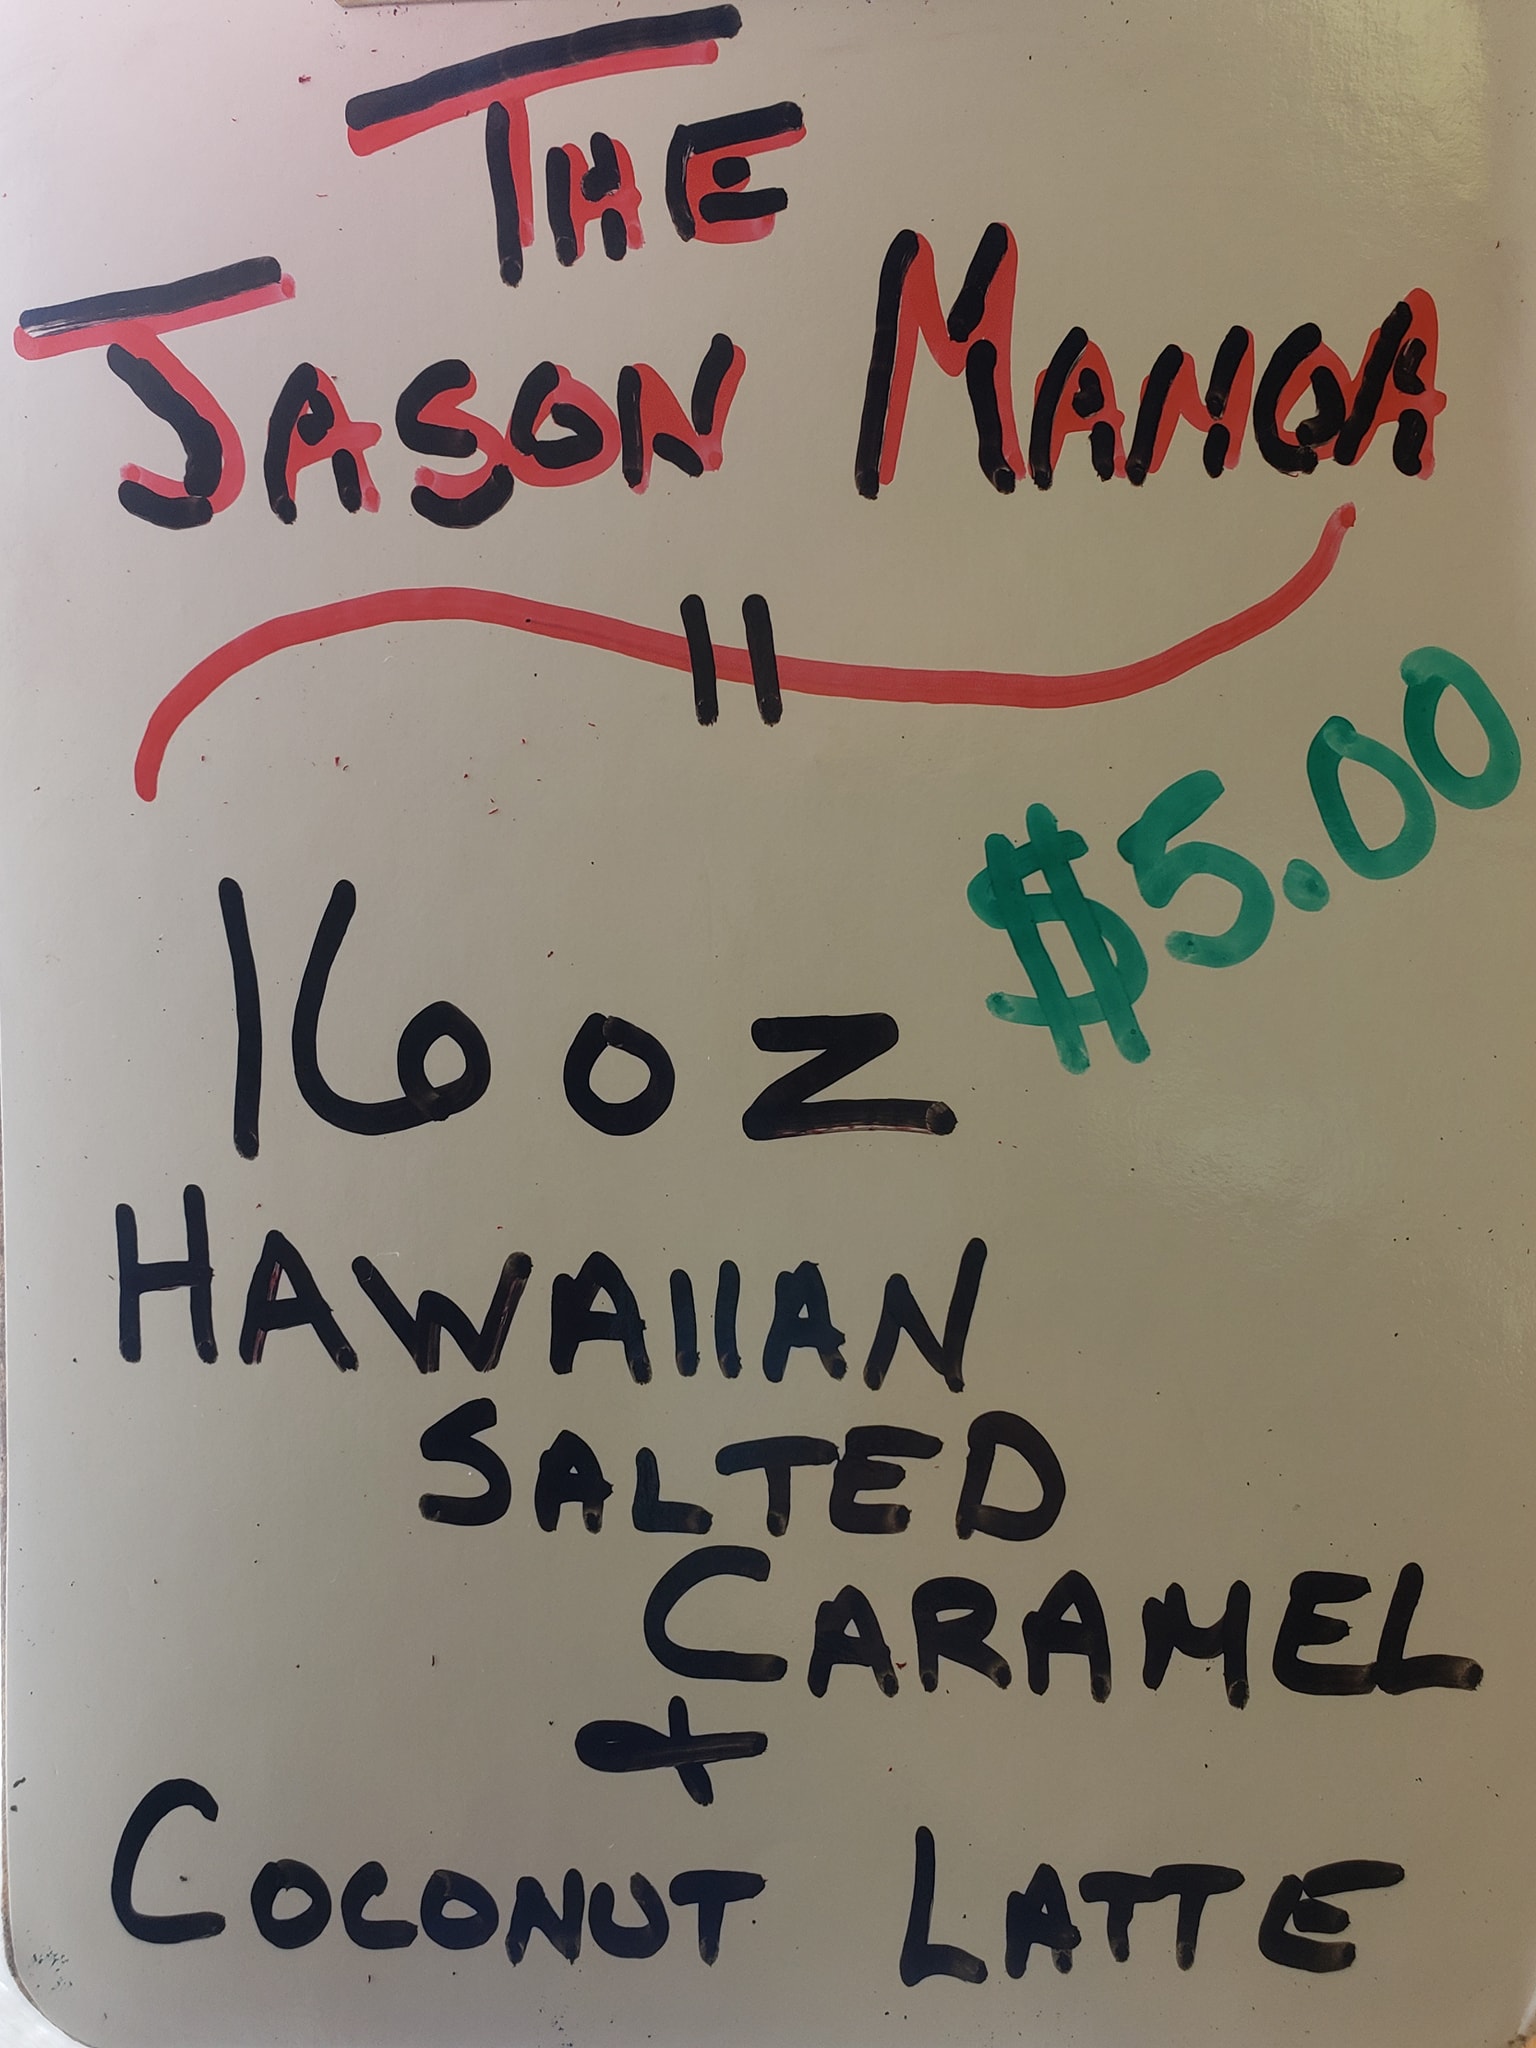 THE
JASON MANOA
$5.00
16 oz
HAWAIIAN
SALTED
CARAMEL
+
COCONUT LATTE